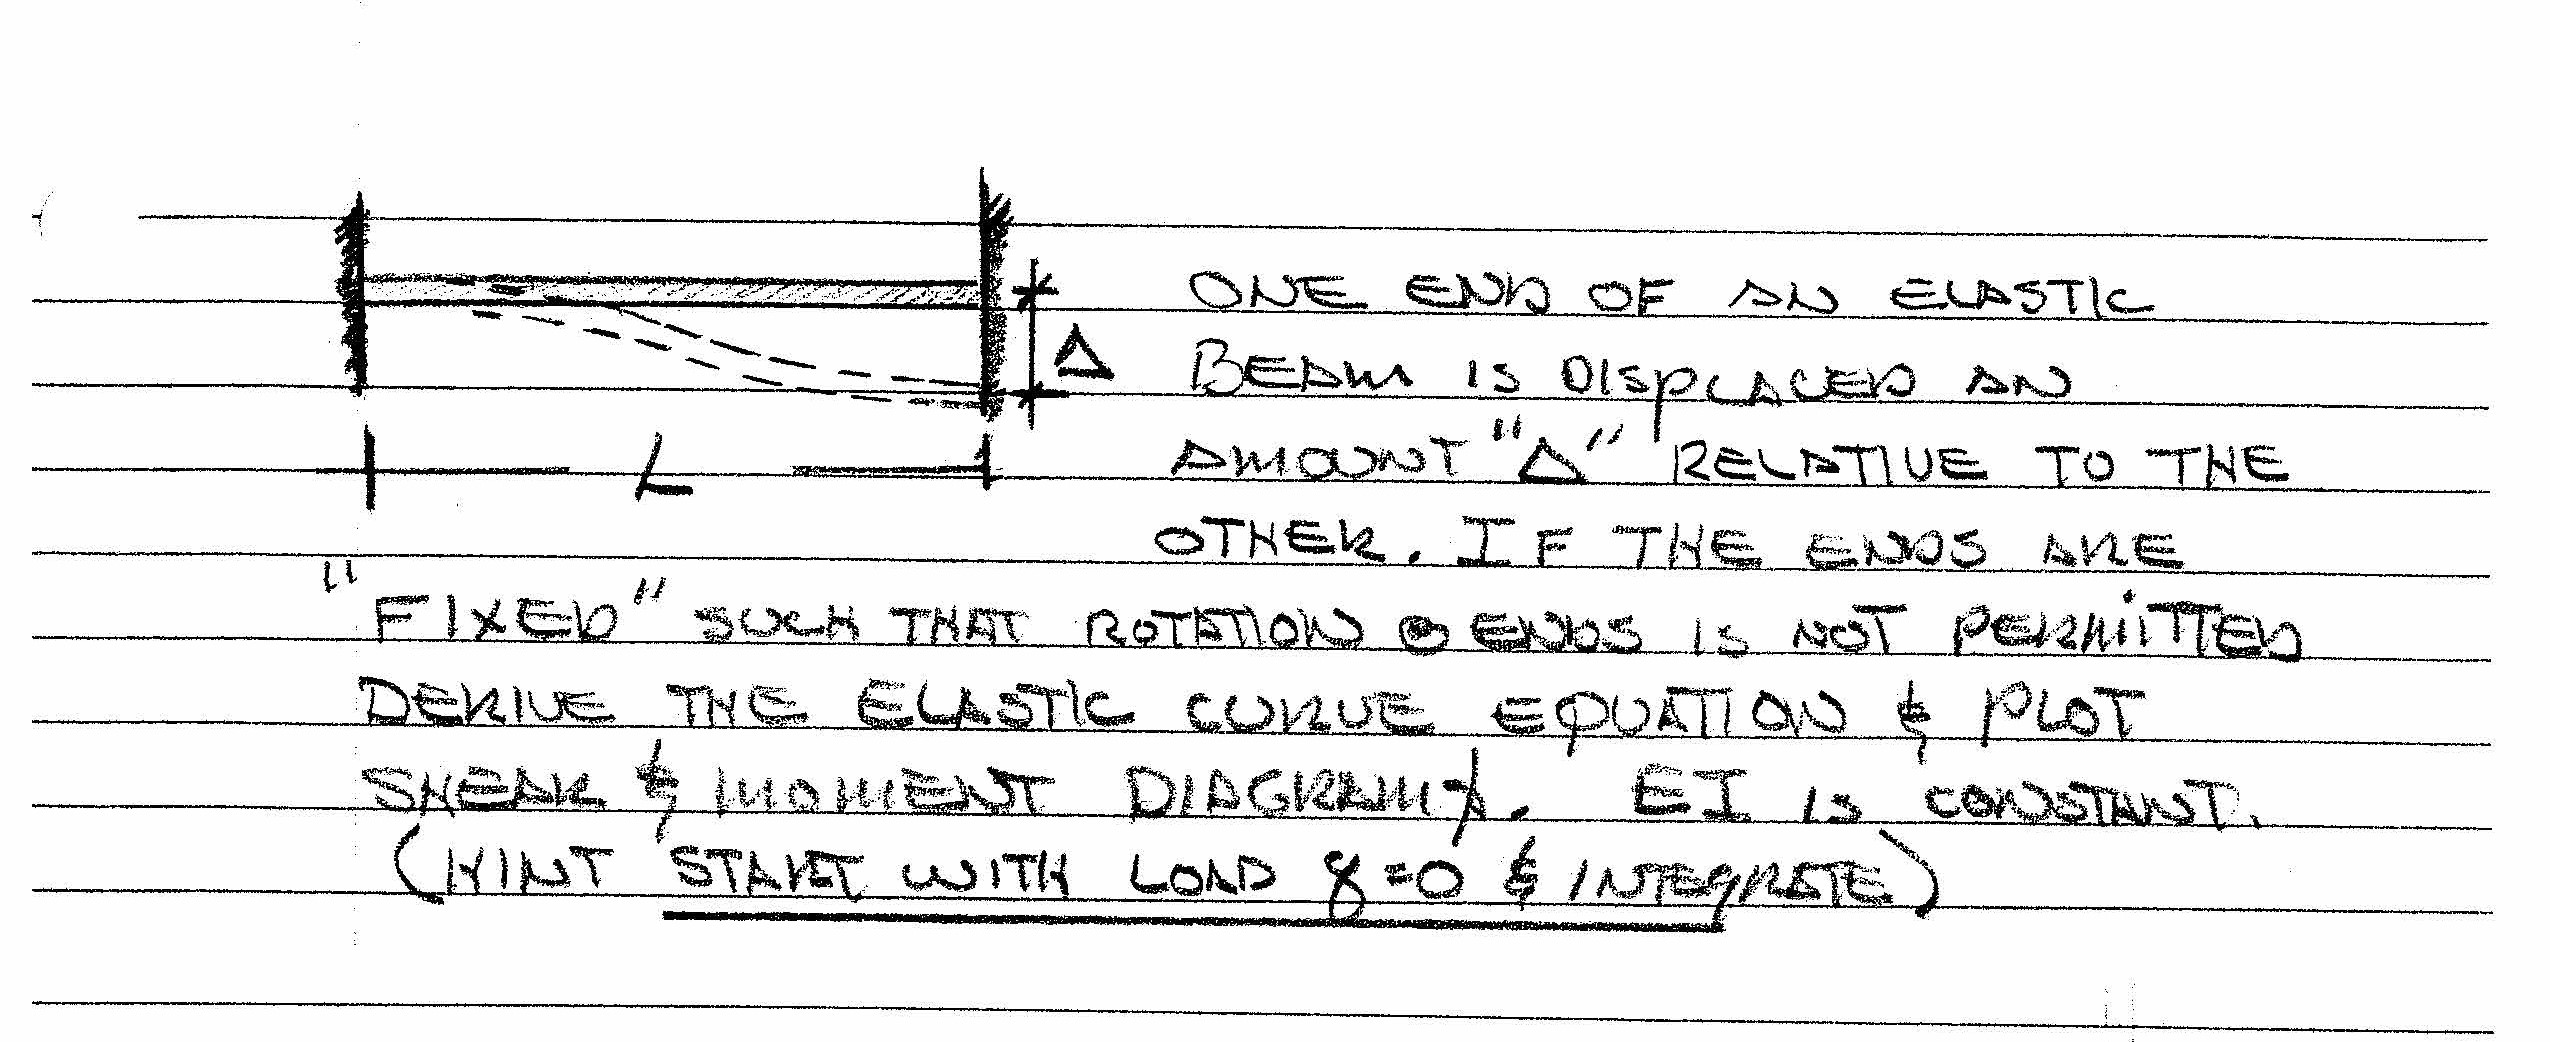 Δ
L
ONE END OF AN ELASTIC
BEAM IS DISPLACED AN
AMOUNT "Δ" RELATIVE TO THE
OTHER. IF THE ENDS ARE
"FIXED" SUCH THAT ROTATION @ ENDS IS NOT PERMITTED
DERIVE THE ELASTIC CURVE EQUATION & PLOT
SHEAR & MOMENT DIAGRAMS. EI IS CONSTANT.
(HINT START WITH LOAD q=0 & INTEGRATE)